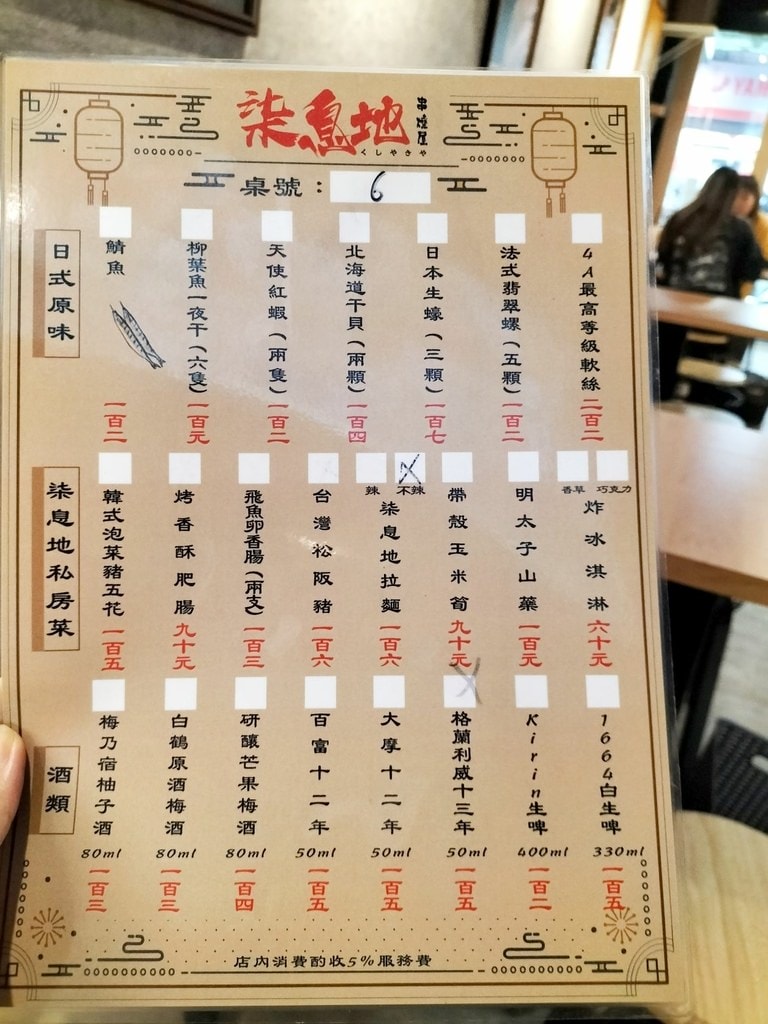 柒息地
串燒屋
くしやきや
桌號：6
日式原味
4A最高等級軟絲 二百二
法式翡翠螺（五顆） 一百二
日本生蠔（三顆） 一百七
北海道干貝（兩顆） 一百四
天使紅蝦（兩隻） 一百二
柳葉魚一夜干（六隻） 一百元
鯖魚 一百二
柒息地私房菜
香草 巧克力
炸冰淇淋 六十元
明太子山藥 一百元
帶殼玉米筍 九十元
辣 不辣
柒息地拉麵 一百六
台灣松阪豬 一百六
飛魚卵香腸（兩支） 一百三
烤香酥肥腸 九十元
韓式泡菜豬五花 一百五
酒類
1664白生啤 330ml 一百五
Kirin生啤 400ml 一百二
格蘭利威十三年 50ml 一百五
大摩十二年 50ml 一百五
百富十二年 50ml 一百五
研釀芒果梅酒 80ml 一百四
白鶴原酒梅酒 80ml 一百三
梅乃宿柚子酒 80ml 一百三
店內消費酌收5%服務費